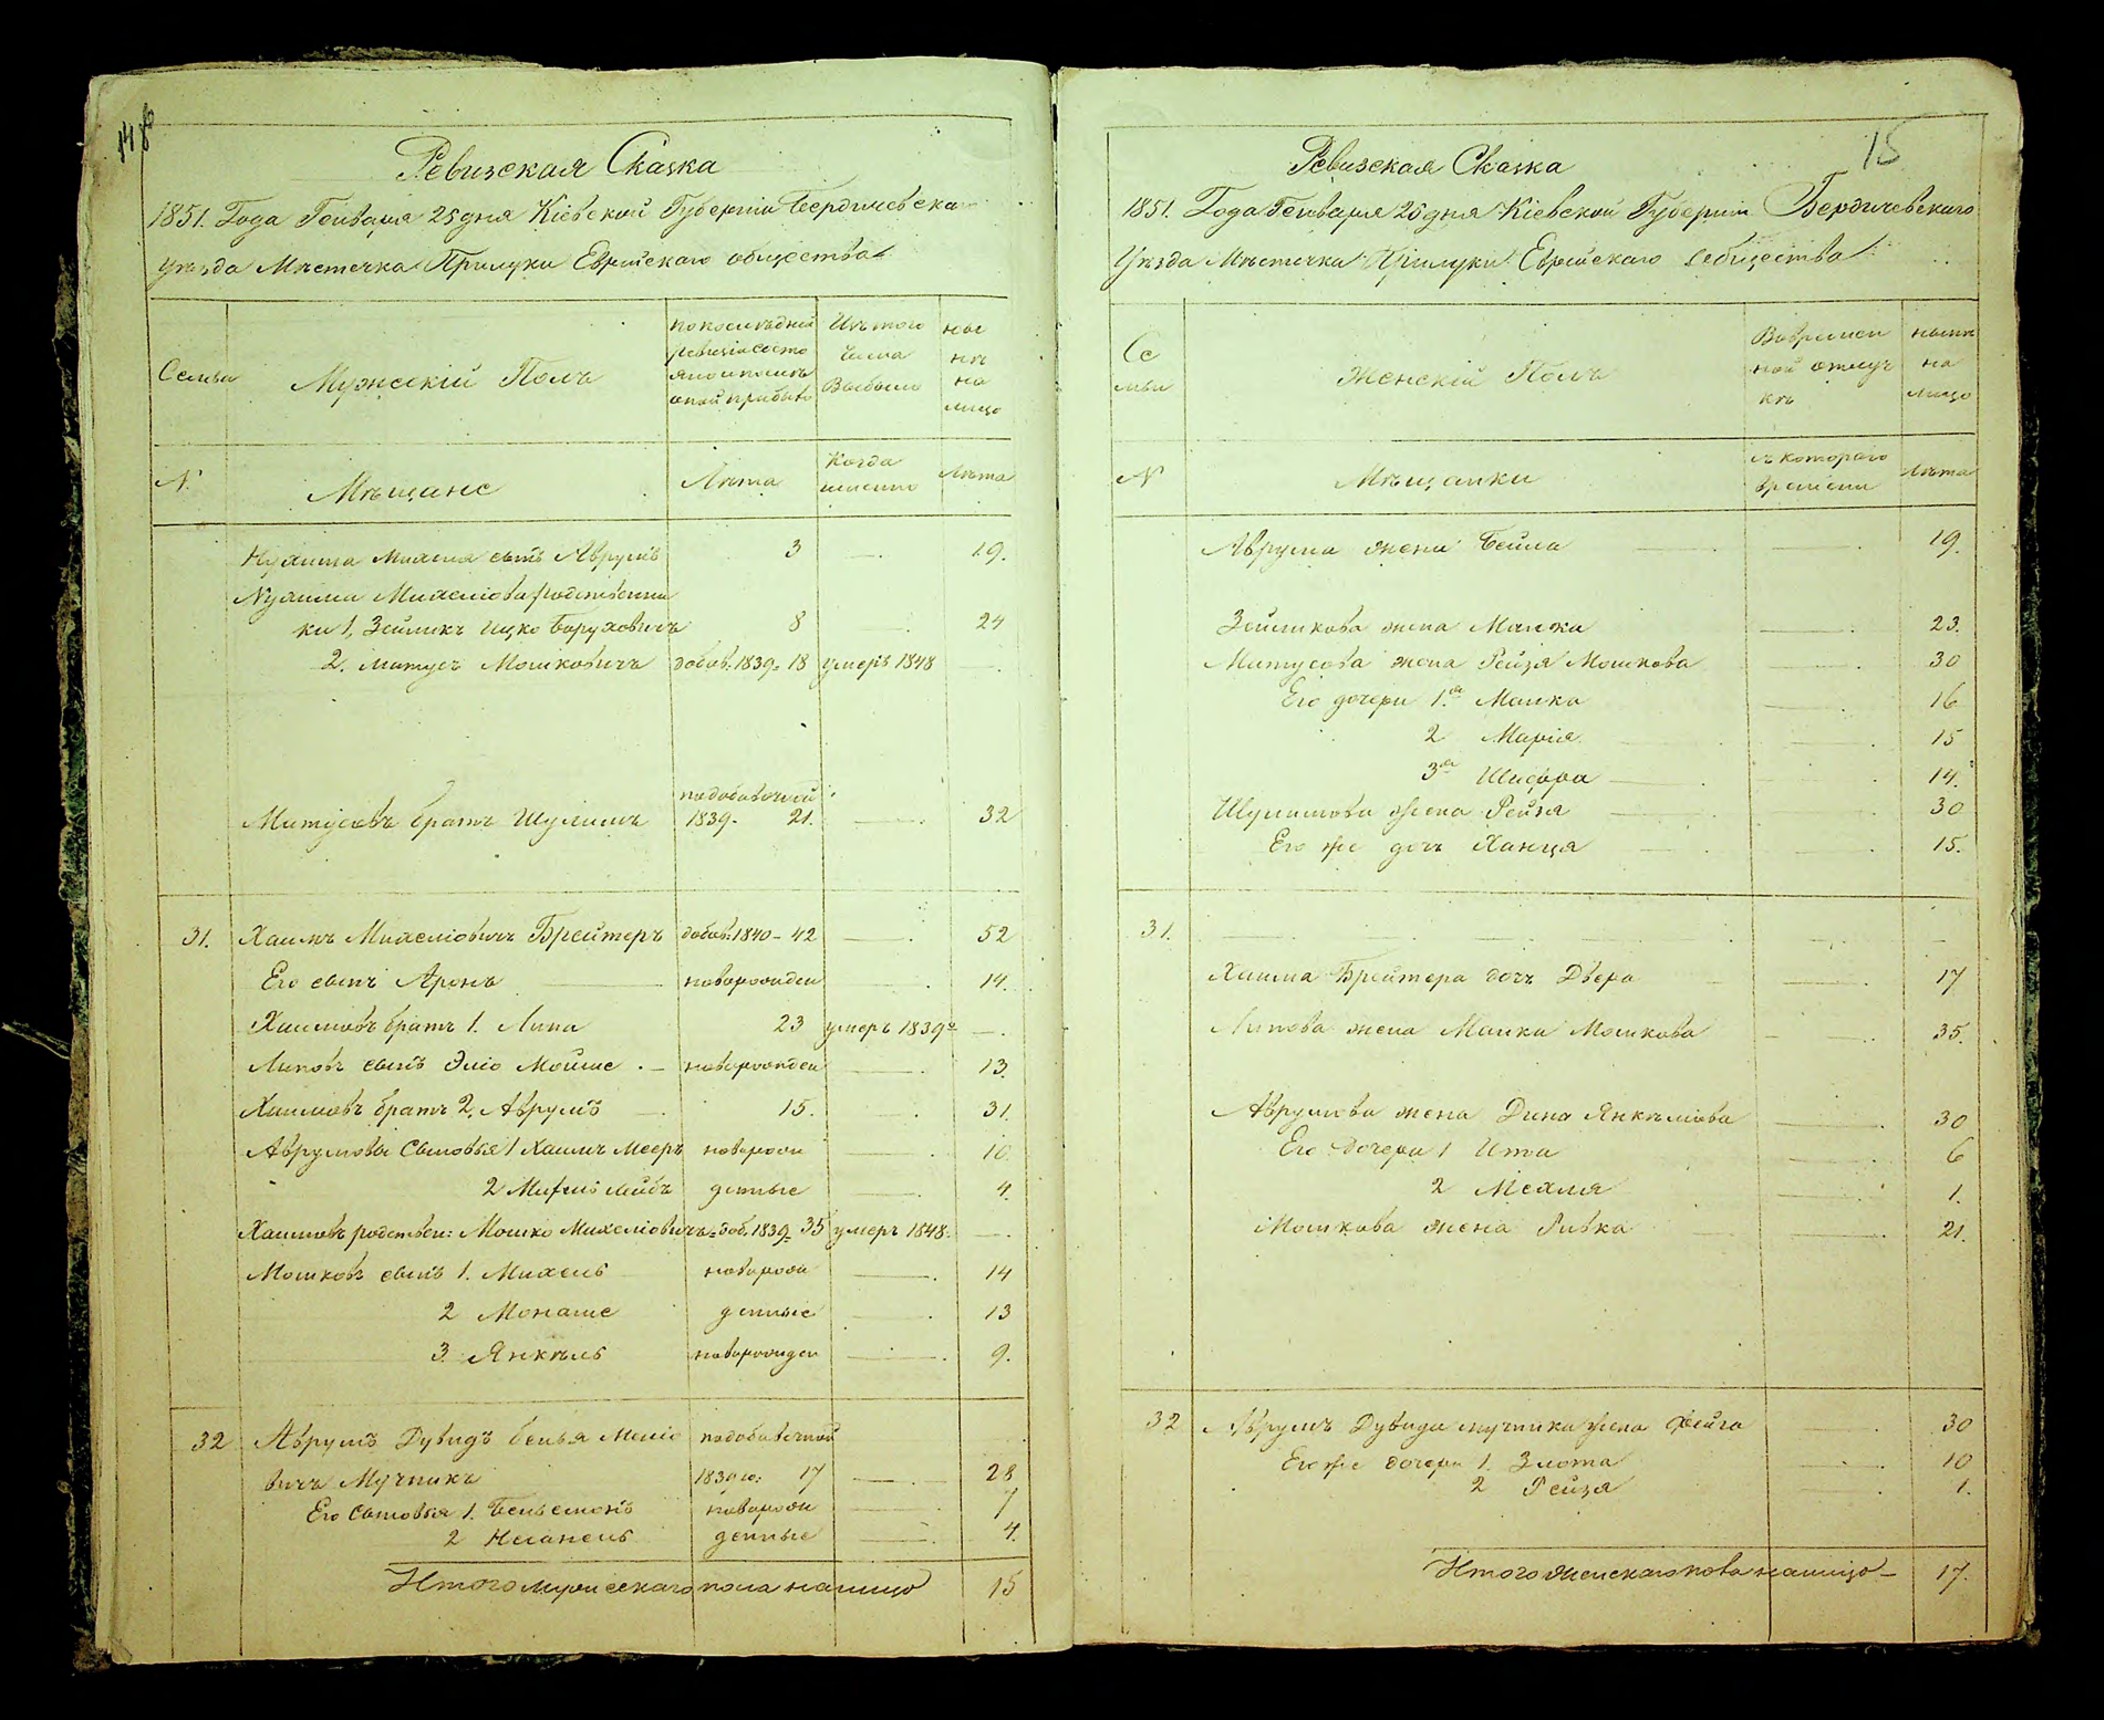 Ревизская Сказка
1851. Года Генваря 25 дня Кіевской Губерніи Бердичевска
уѣзда Мѣстечка Прилуки Еврейскаго общества
Семьи
Мужескій Полъ
по последней
ревизіи состо
яло и послѣ
оной прибыло
Изъ того
числа
Выбыло
ны
нѣ
на
лицо
N.
Мѣщане
Лѣта
Когда
именно
Лѣта
Нухима Михеля сынъ Аврумъ 3 —. 19.
Нухима Михеліова родственни
ки 1, Зейликъ Ицко Боруховичъ 8 —. 24
2. Митусъ Мошковичъ добав: 1839. 18 умеръ 1848 —.
подобавочной
Митусовъ братъ Шулимъ 1839. 21. —. 32
31. Хаимъ Михеліовичъ Брейтеръ добав: 1840 - 42 —. 52
Его сынъ Аронъ — новорожден —. 14.
Хаимовъ братъ 1. Липа 23 умеръ 1839го —.
Липовъ сынъ Эліо Мойше . — новорожден —. 13.
Хаимовъ братъ 2. Аврумъ —. 15. —. 31.
Аврумовы Сыновья 1 Хаимъ Мееръ новорож —. 10.
2 лейбъ денные —. 4.
Хаимовъ родствен: Мошко Михеліовичъ доб. 1839. 35 умеръ 1848. —.
Мошковъ сынъ 1. Михель новорож —. 14
2 Монаше денные —. 13
3. Янкель новорожден —. 9.
32 Аврумъ Дувидъ Беньяменіо подобавочной
вичъ Мучникъ 1839го: 17 —. 28
Его Сыновья 1. новорож —. 7
2 денные —. 4.
Итого мужескаго пола налицо 15
15
Ревизская Сказка
1851. Года Генваря 25 дня Кіевской Губерніи Бердичевскаго
Уѣзда Мѣстечка Прилуки Еврейскаго Общества
Се
мьи
Женскій Полъ
Вовремен
ной отлуч
кѣ
нынѣ
на
лицо
N
Мѣщанки
съ котораго
времени
Лѣта
Аврума жена Бейла —. —. 19.
Зейликова жена Малка —. 23.
Митусова жена Рейзя Мошкова —. 30
Его дочери 1.я Малка —. 16
2 Марія —. —. 15
3я Шифра —. —. 14.
Шулимова жена Рейзя —. 30
Его же дочь Ханця —. —. 15.
31. —. —. —
Хаима Брейтера дочь Двера —. 17
Липова жена Малка Мошкова — —.. 35.
Аврумова жена Дина Янкеліова —. 30
Его Дочери 1 Ита —. 6
2 Мехля —. 1.
Мошкова жена Ривка —. 21.
32 Аврумъ Дувида мучника жена Фейга —. 30
Его же дочери 1. Злота —. 10
2 Рейзя —. 1.
Итого женскаго пола налицо — 17.